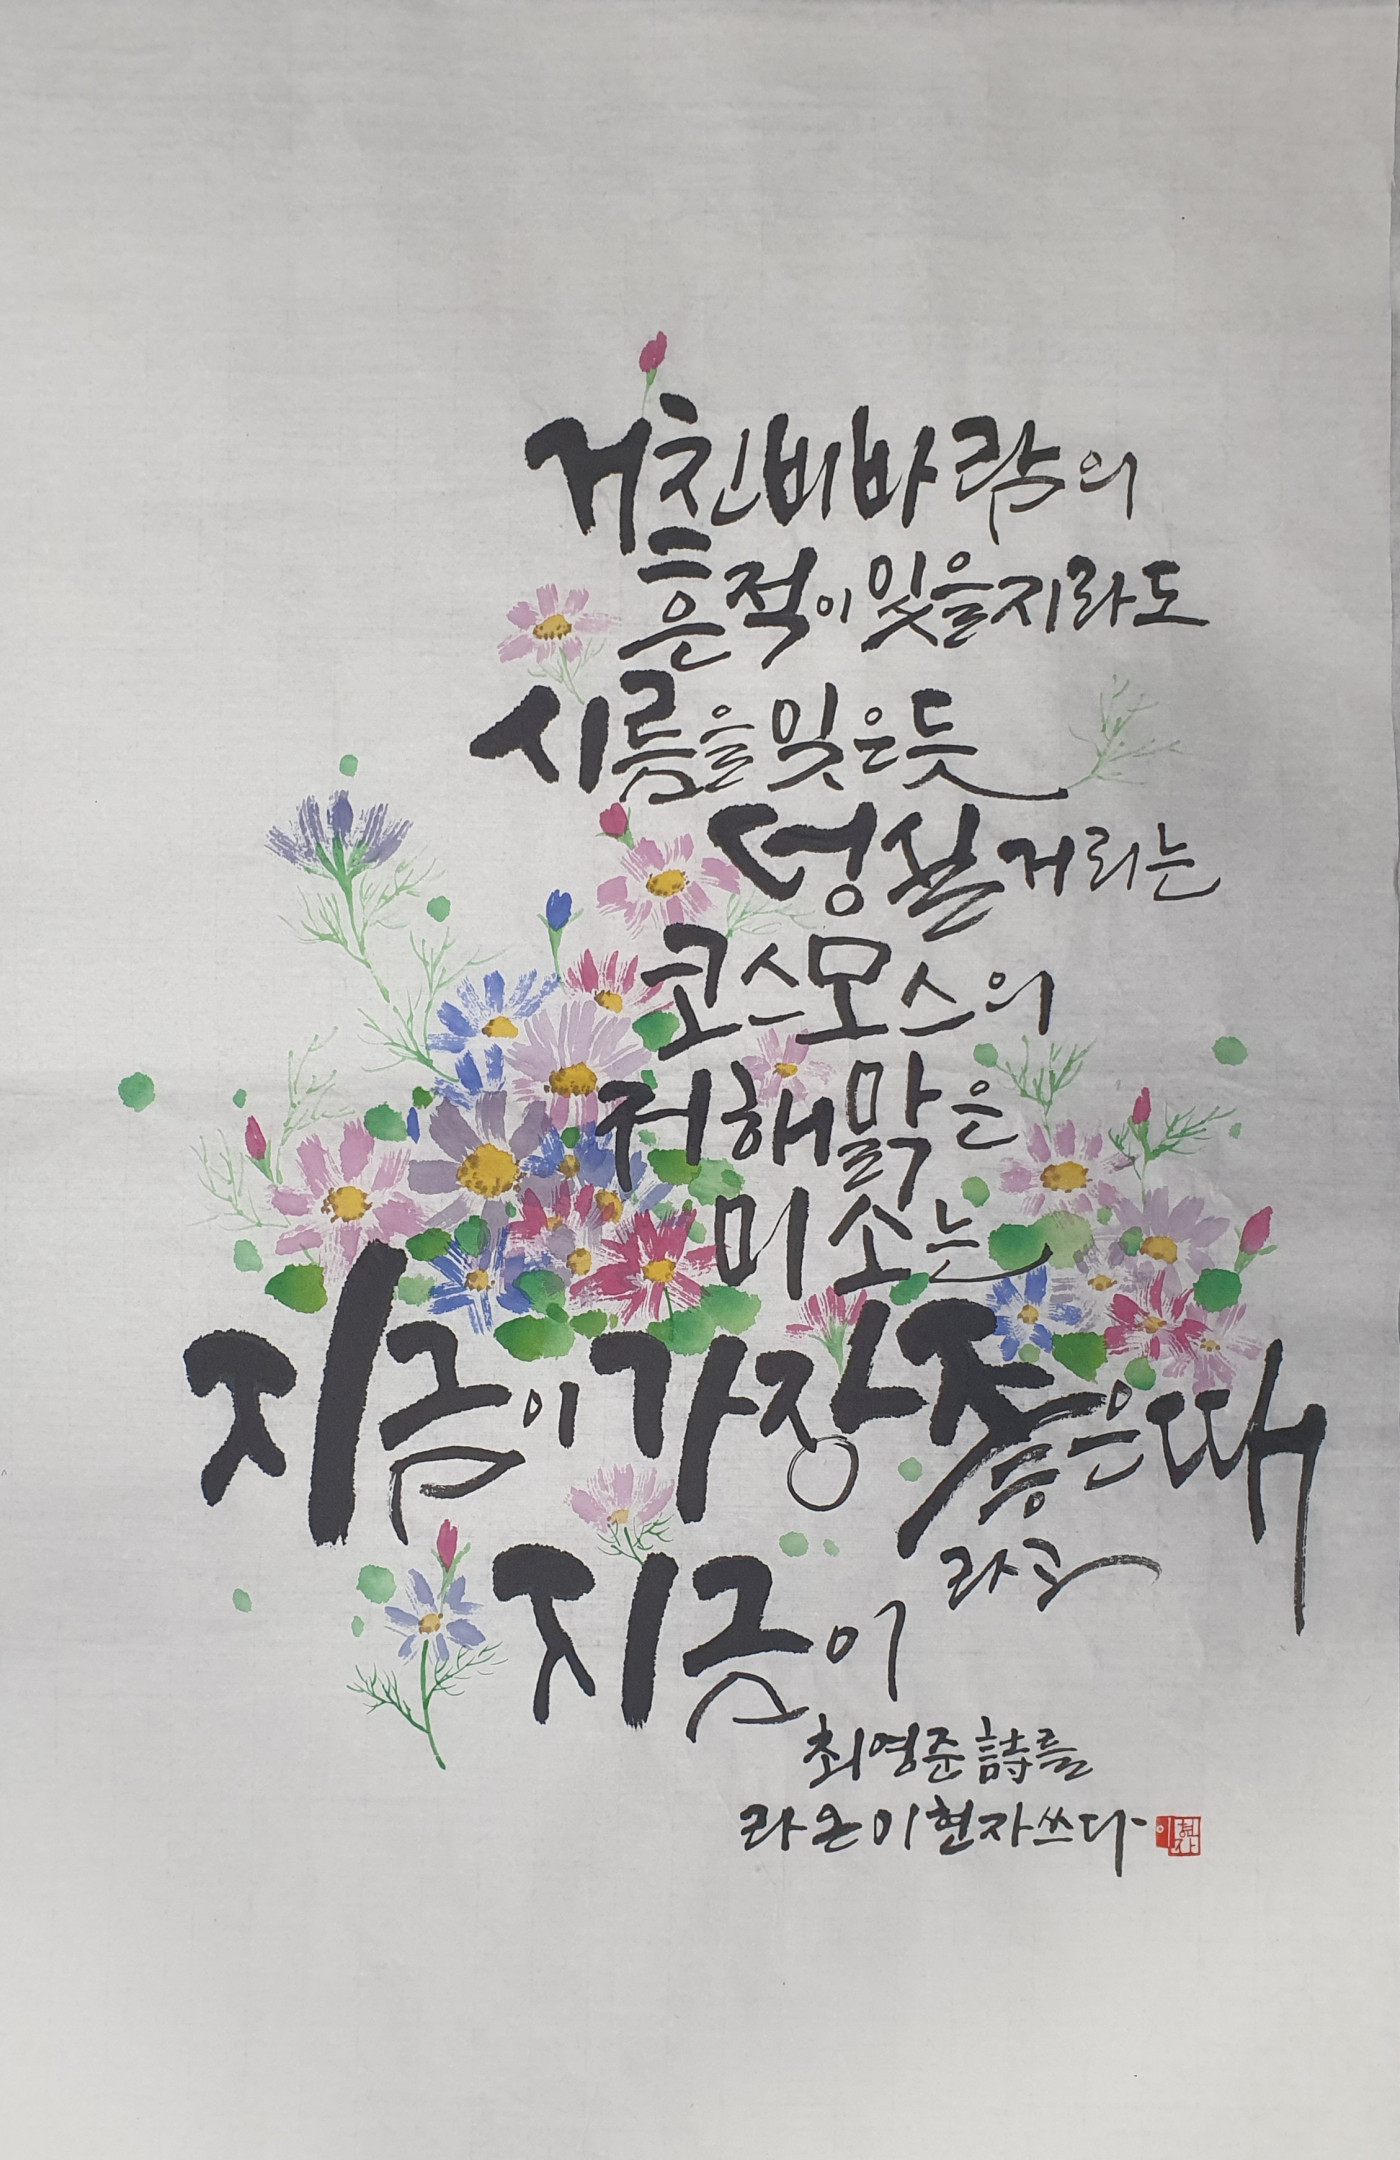 거친 비바람의
흔적이 있을지라도
시름을 잊은 듯
덩실거리는
코스모스의
저 해맑은
미소는
지금이 가장 좋은 때
라고
지금이
최영준 詩를
라온 이현자 쓰다
이현자